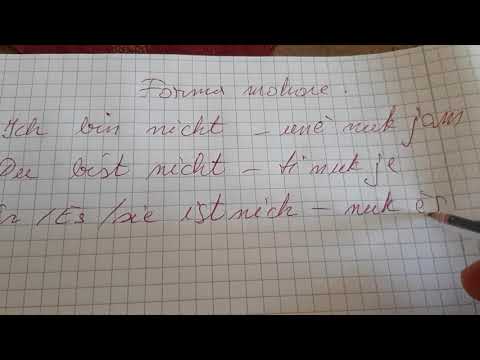 Forma mohore.
Ich bin nicht - unë nuk jam
Du bist nicht - ti nuk je
Er / Es / sie ist nich - nuk ës